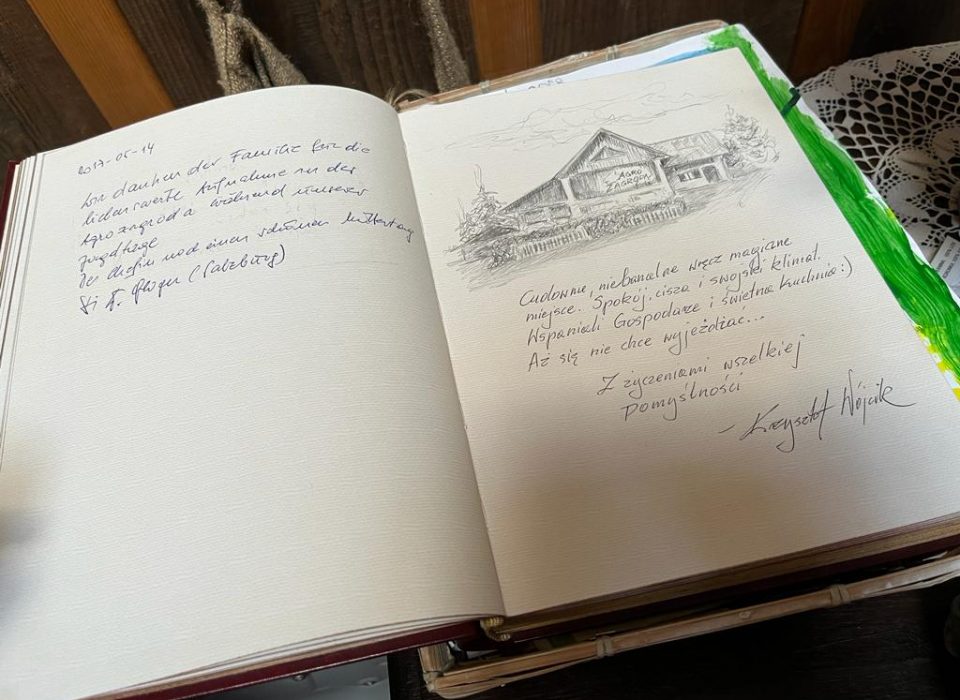 2017-05-14
Wir danken der Familie für die
liebenswerte Aufnahme in der
Agrozagroda während unserer
Jagdtage
Der Chefin noch einen schönen Muttertag
(Salzburg)
AGRO
ZAGRODA
Cudowne, niebanalne wręcz magiczne
miejsce. Spokój, cisza i swojski klimat.
Wspaniali Gospodarze i świetna kuchnia :)
Aż się nie chce wyjeżdżać...
Z życzeniami wszelkiej
Pomyślności
- Krzysztof Wójcik